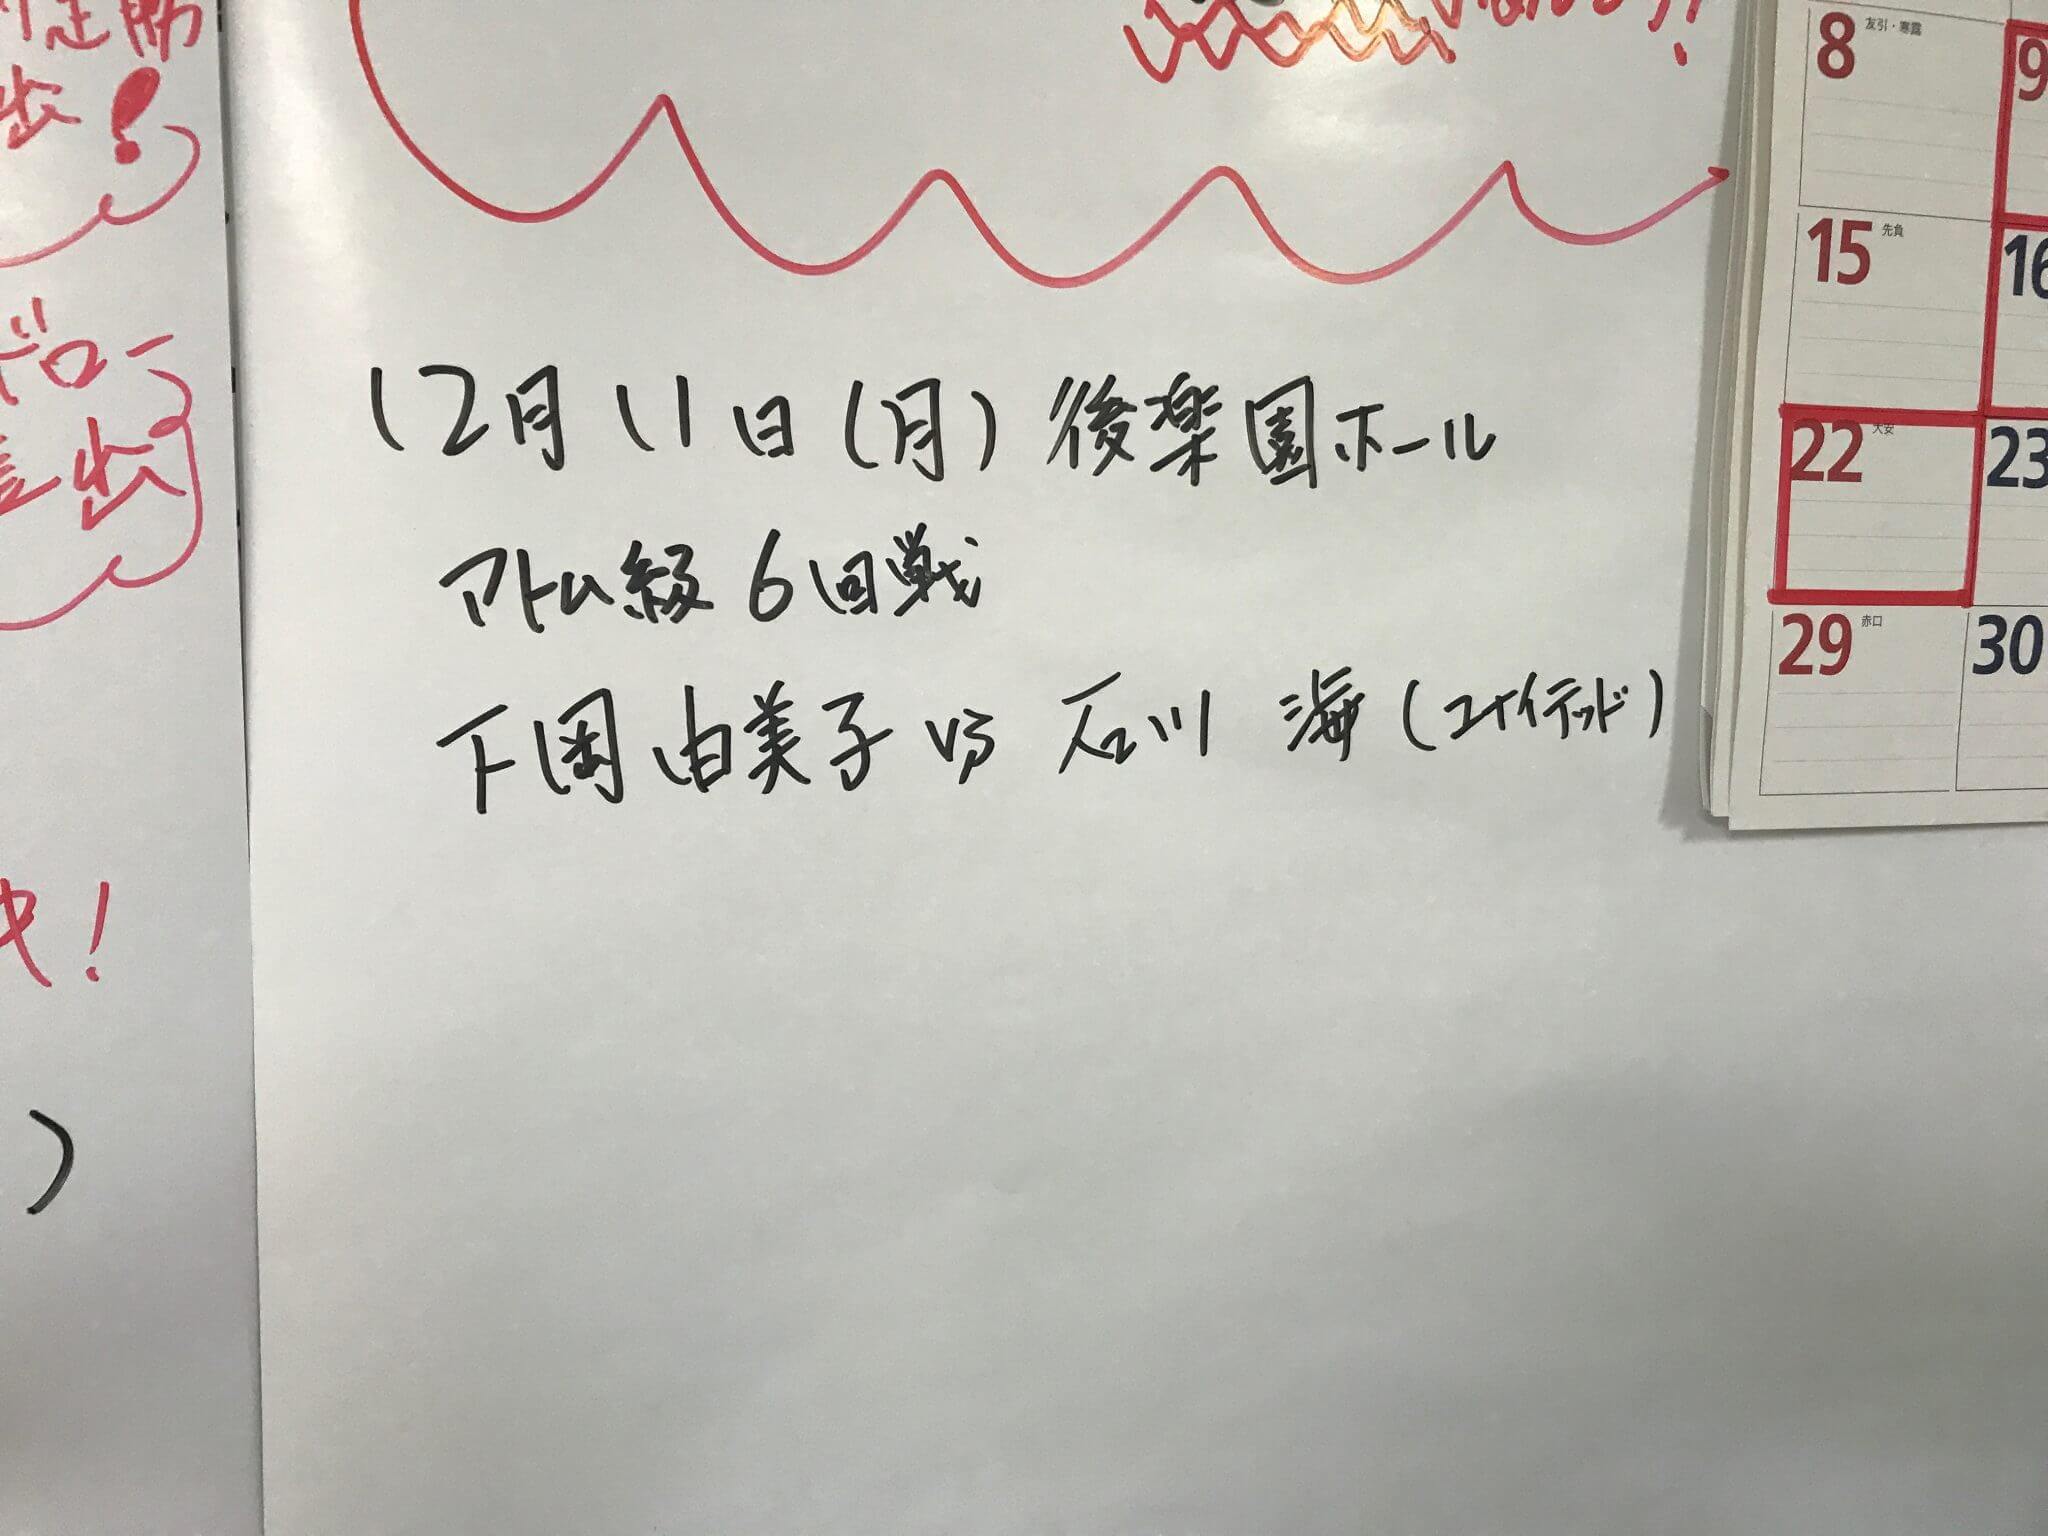 12月11日(月)後楽園ホール
アトム級 6回戦
下岡由美子 vs 石川 海(ユナイテッド)
8 友引・寒露
9
15 先負
16
22 大安
23
29 赤口
30
ドロー
!